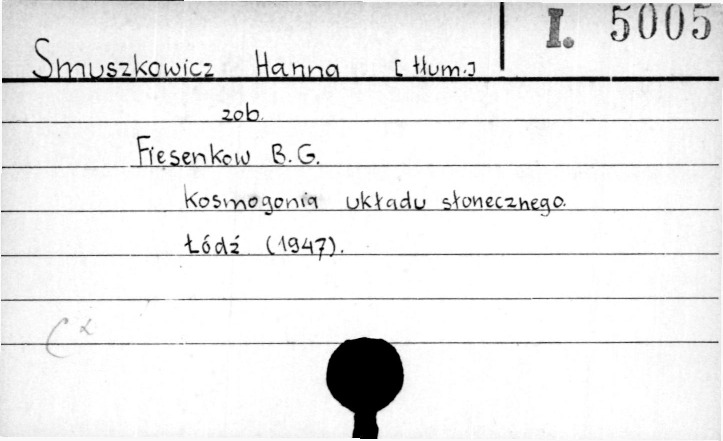 I. 5005
Smuszkowicz Hanna [tłum.]
zob.
Fiesenkow B.G.
Kosmogonia układu słonecznego.
Łódź (1947).